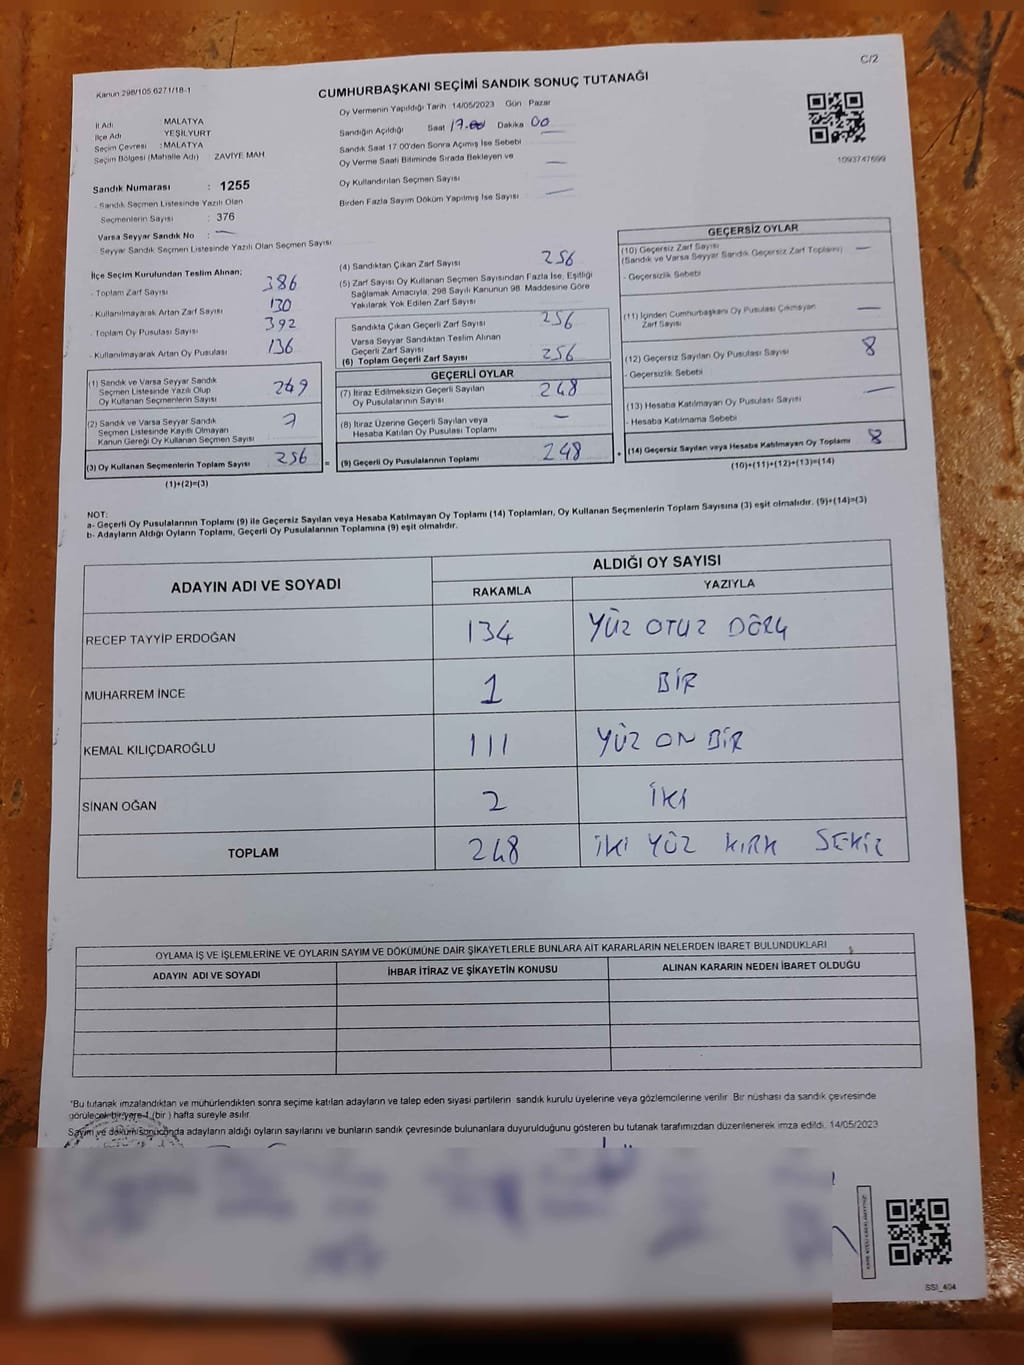 C/2
Kanun 298/105 6271/18-1
CUMHURBAŞKANI SEÇİMİ SANDIK SONUÇ TUTANAĞI
İl Adı MALATYA
İlçe Adı YEŞİLYURT
Seçim Çevresi : MALATYA
Seçim Bölgesi (Mahalle Adı) ZAVİYE MAH
Sandık Numarası : 1255
- Sandık Seçmen Listesinde Yazılı Olan
Seçmenlerin Sayısı : 376
Varsa Seyyar Sandık No : —
- Seyyar Sandık Seçmen Listesinde Yazılı Olan Seçmen Sayısı
Oy Vermenin Yapıldığı Tarih 14/05/2023 Gün Pazar
Sandığın Açıldığı Saat 17.00 Dakika 00
Sandık Saat 17.00'den Sonra Açımış İse Sebebi
Oy Verme Saati Bitiminde Sırada Bekleyen ve —
Oy Kullandırılan Seçmen Sayısı
Birden Fazla Sayım Döküm Yapılmış İse Sayısı —
1093747699
İlçe Seçim Kurulundan Teslim Alınan;
- Toplam Zarf Sayısı 386
- Kullanılmayarak Artan Zarf Sayısı 130
- Toplam Oy Pusulası Sayısı 392
- Kullanılmayarak Artan Oy Pusulası 136
(1) Sandık ve Varsa Seyyar Sandık
Seçmen Listesinde Yazılı Olup
Oy Kullanan Seçmenlerin Sayısı 249
(2) Sandık ve Varsa Seyyar Sandık
Seçmen Listesinde Kayıtlı Olmayan
Kanun Gereği Oy Kullanan Seçmen Sayısı 7
(3) Oy Kullanan Seçmenlerin Toplam Sayısı 256 =
(1)+(2)=(3)
(4) Sandıktan Çıkan Zarf Sayısı 256
(5) Zarf Sayısı Oy Kullanan Seçmen Sayısından Fazla İse, Eşitliği
Sağlamak Amacıyla, 298 Sayılı Kanunun 98. Maddesine Göre
Yakılarak Yok Edilen Zarf Sayısı
Sandıkta Çıkan Geçerli Zarf Sayısı 256
Varsa Seyyar Sandıktan Teslim Alınan
Geçerli Zarf Sayısı
(6) Toplam Geçerli Zarf Sayısı 256
GEÇERLİ OYLAR
(7) İtiraz Edilmeksizin Geçerli Sayılan
Oy Pusulalarının Sayısı 248
(8) İtiraz Üzerine Geçerli Sayılan veya
Hesaba Katılan Oy Pusulası Toplamı —
(9) Geçerli Oy Pusulalarının Toplamı 248 +
GEÇERSİZ OYLAR
(10) Geçersiz Zarf Sayısı —
(Sandık ve Varsa Seyyar Sandık Geçersiz Zarf Toplamı)
- Geçersizlik Sebebi
(11) İçinden Cumhurbaşkanı Oy Pusulası Çıkmayan
Zarf Sayısı —
(12) Geçersiz Sayılan Oy Pusulası Sayısı 8
- Geçersizlik Sebebi
(13) Hesaba Katılmayan Oy Pusulası Sayısı —
- Hesaba Katılmama Sebebi
(14) Geçersiz Sayılan veya Hesaba Katılmayan Oy Toplamı 8
(10)+(11)+(12)+(13)=(14)
NOT:
a- Geçerli Oy Pusulalarının Toplamı (9) ile Geçersiz Sayılan veya Hesaba Katılmayan Oy Toplamı (14) Toplamları, Oy Kullanan Seçmenlerin Toplam Sayısına (3) eşit olmalıdır. (9)+(14)=(3)
b- Adayların Aldığı Oyların Toplamı, Geçerli Oy Pusulalarının Toplamına (9) eşit olmalıdır.
ADAYIN ADI VE SOYADI ALDIĞI OY SAYISI
RAKAMLA YAZIYLA
RECEP TAYYİP ERDOĞAN 134 YÜZ OTUZ DÖRt
MUHARREM İNCE 1 BİR
KEMAL KILIÇDAROĞLU 111 YÜZ ON BİR
SİNAN OĞAN 2 İKİ
TOPLAM 248 İKİ YÜZ KIRK SEKİZ
OYLAMA İŞ VE İŞLEMLERİNE VE OYLARIN SAYIM VE DÖKÜMÜNE DAİR ŞİKAYETLERLE BUNLARA AİT KARARLARIN NELERDEN İBARET BULUNDUKLARI
ADAYIN ADI VE SOYADI İHBAR İTİRAZ VE ŞİKAYETİN KONUSU ALINAN KARARIN NEDEN İBARET OLDUĞU
*Bu tutanak imzalandıktan ve mühürlendikten sonra seçime katılan adayların ve talep eden siyasi partilerin sandık kurulu üyelerine veya gözlemcilerine verilir. Bir nüshası da sandık çevresinde
görülecek bir yere 1 (bir ) hafta süreyle asılır.
Sayım ve döküm sonucunda adayların aldığı oyların sayılarını ve bunların sandık çevresinde bulunanlara duyurulduğunu gösteren bu tutanak tarafımızdan düzenlenerek imza edildi. 14/05/2023
SSI_404